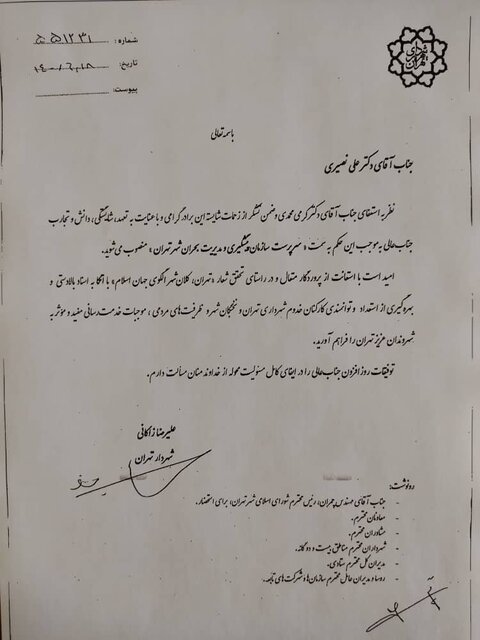 شهرداری تهران
شماره: ۵۵۱۲۳۱
تاریخ:
پیوست:
باسمه تعالی
جناب آقای دکتر علی نصیری
نظر به استعفای جناب آقای دکتر کرمی محمدی و ضمن تشکر از زحمات شایسته این برادر گرامی و با عنایت به تعهد، شایستگی، دانش و تجارب
جنابعالی به موجب این حکم به سمت « سرپرست سازمان پیشگیری و مدیریت بحران شهر تهران » منصوب می‌شوید.
امید است با استعانت از پروردگار متعال و در راستای تحقق شعار «تهران، کلان‌شهر الگوی جهان اسلام» با اتکا به اسناد بالادستی و
بهره‌گیری از استعداد و توانمندی کارکنان خدوم شهرداری تهران و نخبگان شهر و ظرفیت‌های مردمی ، موجبات خدمت‌رسانی مفید و مؤثر به
شهروندان عزیز تهران را فراهم آورید.
توفیقات روزافزون جنابعالی را در ایفای کامل مسئولیت محوله از خداوند منان مسألت دارم.
علیرضا زاکانی
شهردار تهران
رونوشت:
- جناب آقای مهندس چمران، رئیس محترم شورای اسلامی شهر تهران، برای استحضار.
- معاونان محترم.
- مشاوران محترم.
- شهرداران محترم مناطق بیست و دوگانه.
- مدیران کل محترم ستادی.
- روسا و مدیران عامل محترم سازمان‌ها و شرکت‌های تابعه.